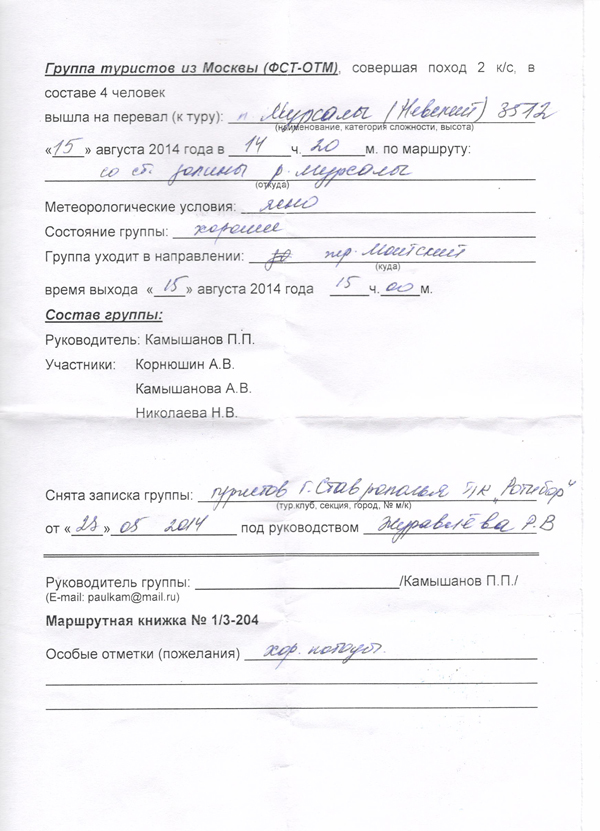 Группа туристов из Москвы (ФСТ-ОТМ), совершая поход 2 к/с, в
составе 4 человек
вышла на перевал (к туру): п. Мурсалы (Невский) 3512
(наименование, категория сложности, высота)
«15» августа 2014 года в 14 ч. 20 м. по маршруту:
со ст. долины р. Мурсалы
(откуда)
Метеорологические условия: ясно
Состояние группы: хорошее
Группа уходит в направлении: пер. Моитский
(куда)
время выхода «15» августа 2014 года 15 ч. 00 м.
Состав группы:
Руководитель: Камышанов П.П.
Участники: Корнюшин А.В.
Камышанова А.В.
Николаева Н.В.
Снята записка группы: туристов г. Ставрополья т/к "Ротибор"
(тур.клуб, секция, город, № м/к)
от «23» 05 2014 под руководством Журавлёва Р.В
Руководитель группы: /Камышанов П.П./
(E-mail: paulkam@mail.ru)
Маршрутная книжка № 1/3-204
Особые отметки (пожелания) хор. погоды.